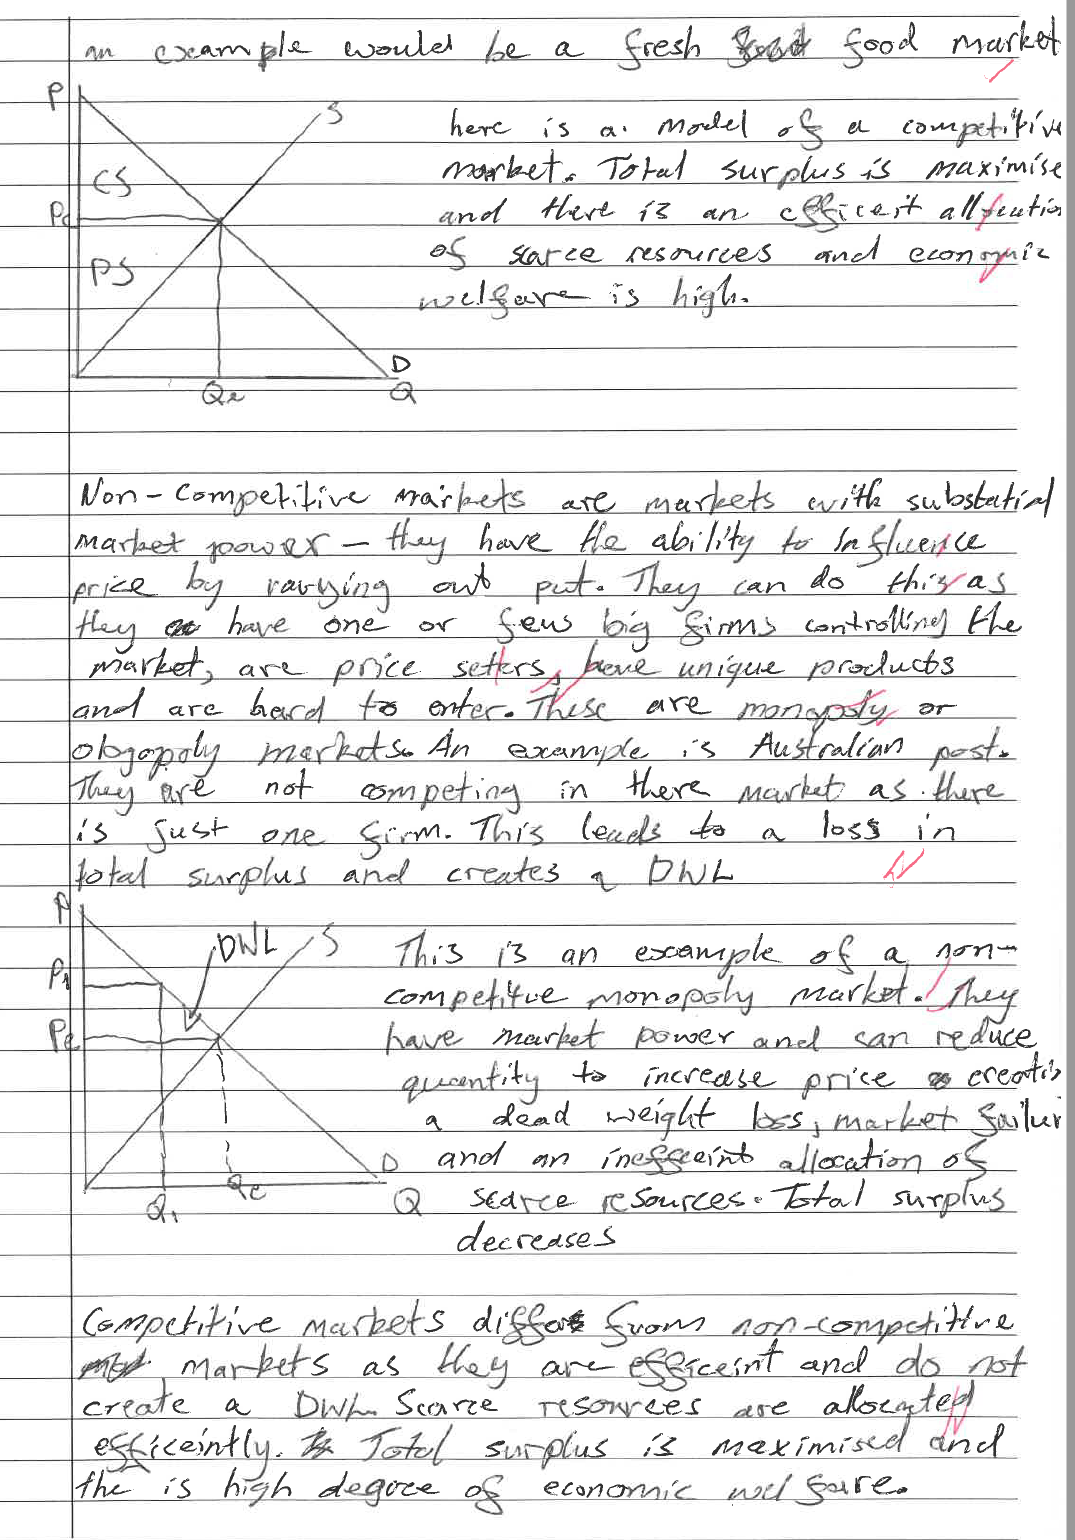 an example would be a fresh food market
P
S
here is a model of a competitive
CS
market. Total surplus is maximise
Pe
and there is an efficeint allocatio
PS
of scarce resources and economic
welfare is high.
D
Qe
Q
Non-Competitive markets are markets with substatial
market power - they have the ability to Influence
price by varying out put. They can do this as
they have one or few big firms controlling the
market, are price setters, have unique products
and are hard to enter. These are monopoly or
ologopoly markets. An example is Australian post.
They are not competing in there market as there
is just one firm. This leads to a loss in
total surplus and creates a DWL
P
DWL
S
This is an example of a non-
P1
competitve monopoly market. They
Pe
have market power and can reduce
quantity to increase price creatin
a dead weight loss, market failur
D
and an ineffceint allocation of
Q1
Qe
Q
scarce resources. Total surplus
decreases
Competitive markets differ from non-competitive
markets as they are efficeint and do not
create a DWL. Scarce resources are allocated
efficeintly. Total surplus is maximised and
the is high degree of economic welfare.